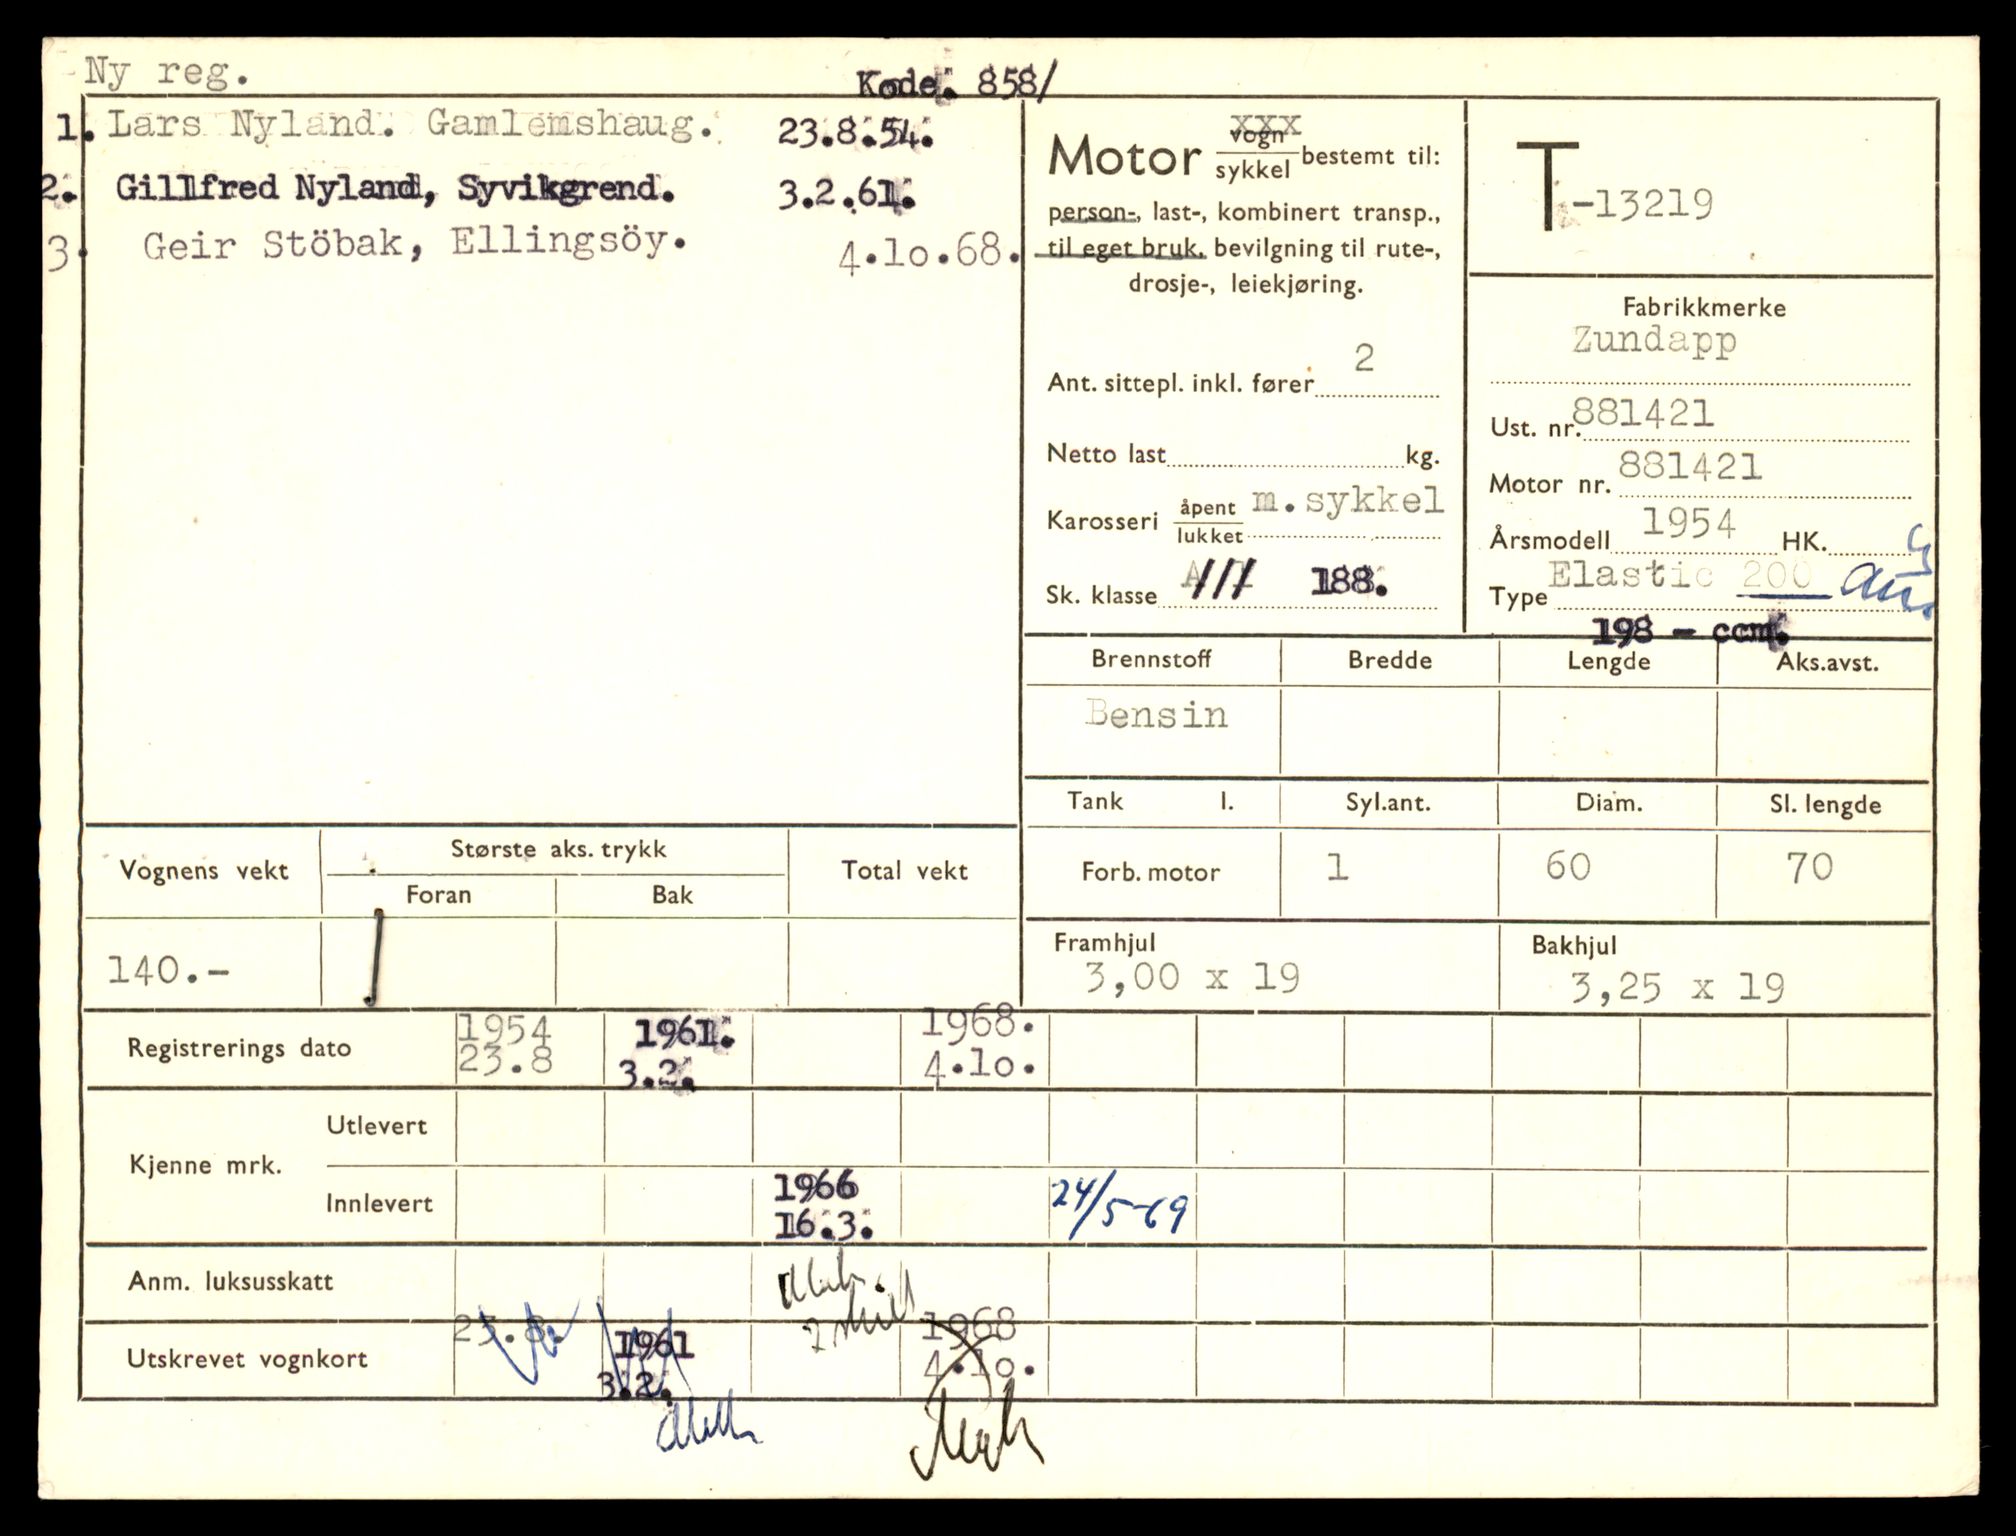 Ny reg.
Kode. 858/
1. Lars Nyland. Gamlemshaug. 23.8.54.
2. Gillfred Nyland, Syvikgrend. 3.2.61.
3. Geir Stöbak, Ellingsöy. 4.10.68.
xxx
Motor vogn sykkel bestemt til:
person-, last-, kombinert transp.,
til eget bruk, bevilgning til rute-,
drosje-, leiekjøring.
Ant. sittepl. inkl. fører 2
Netto last kg.
Karosseri åpent lukket m.sykkel
Sk. klasse 188.
T-13219
Fabrikkmerke
Zundapp
Ust. nr. 881421
Motor nr. 881421
Årsmodell 1954 HK.
Type Elastic 200
198 - ccm.
Brennstoff Bredde Lengde Aks.avst.
Bensin
Tank l. Syl.ant. Diam. Sl. lengde
Forb. motor 1 60 70
Framhjul Bakhjul
3,00 x 19 3,25 x 19
Vognens vekt Største aks. trykk Total vekt
Foran Bak
140.-
Registrerings dato 1954 1961. 1968.
23.8 3.2. 4.10.
Kjenne mrk. Utlevert
Innlevert 1966 24/5-69
16.3.
Anm. luksusskatt
Utskrevet vognkort 23.8. 1961 1968
3.2. 4.10.